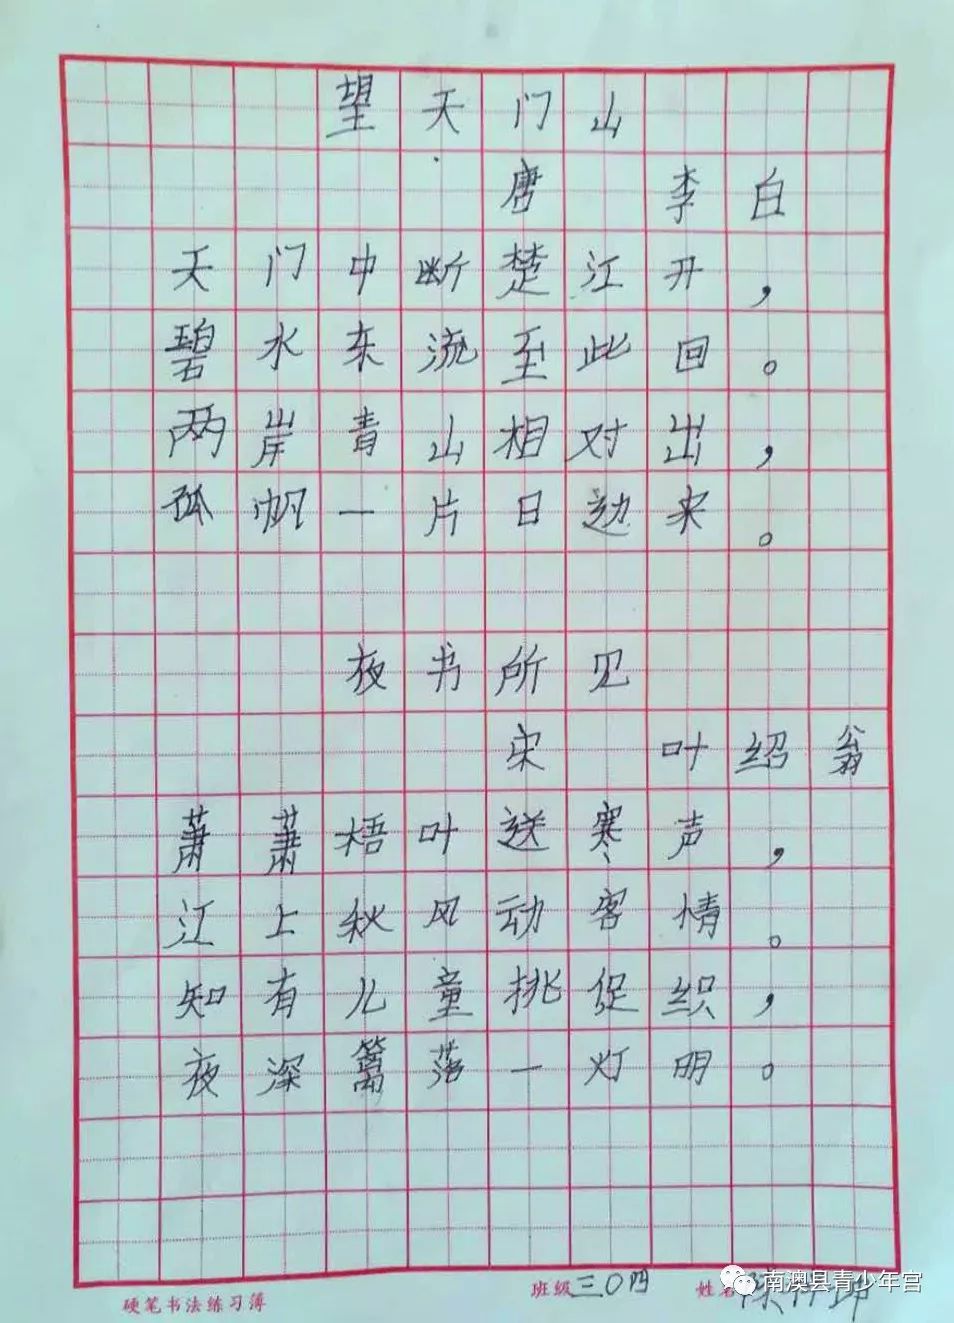 望天门山
唐 李白
天门中断楚江开，
碧水东流至此回。
两岸青山相对出，
孤帆一片日边来。
夜书所见
宋 叶绍翁
萧萧梧叶送寒声，
江上秋风动客情。
知有儿童挑促织，
夜深篱落一灯明。
硬笔书法练习薄 班级 三〇四 姓名
南澳县青少年宫